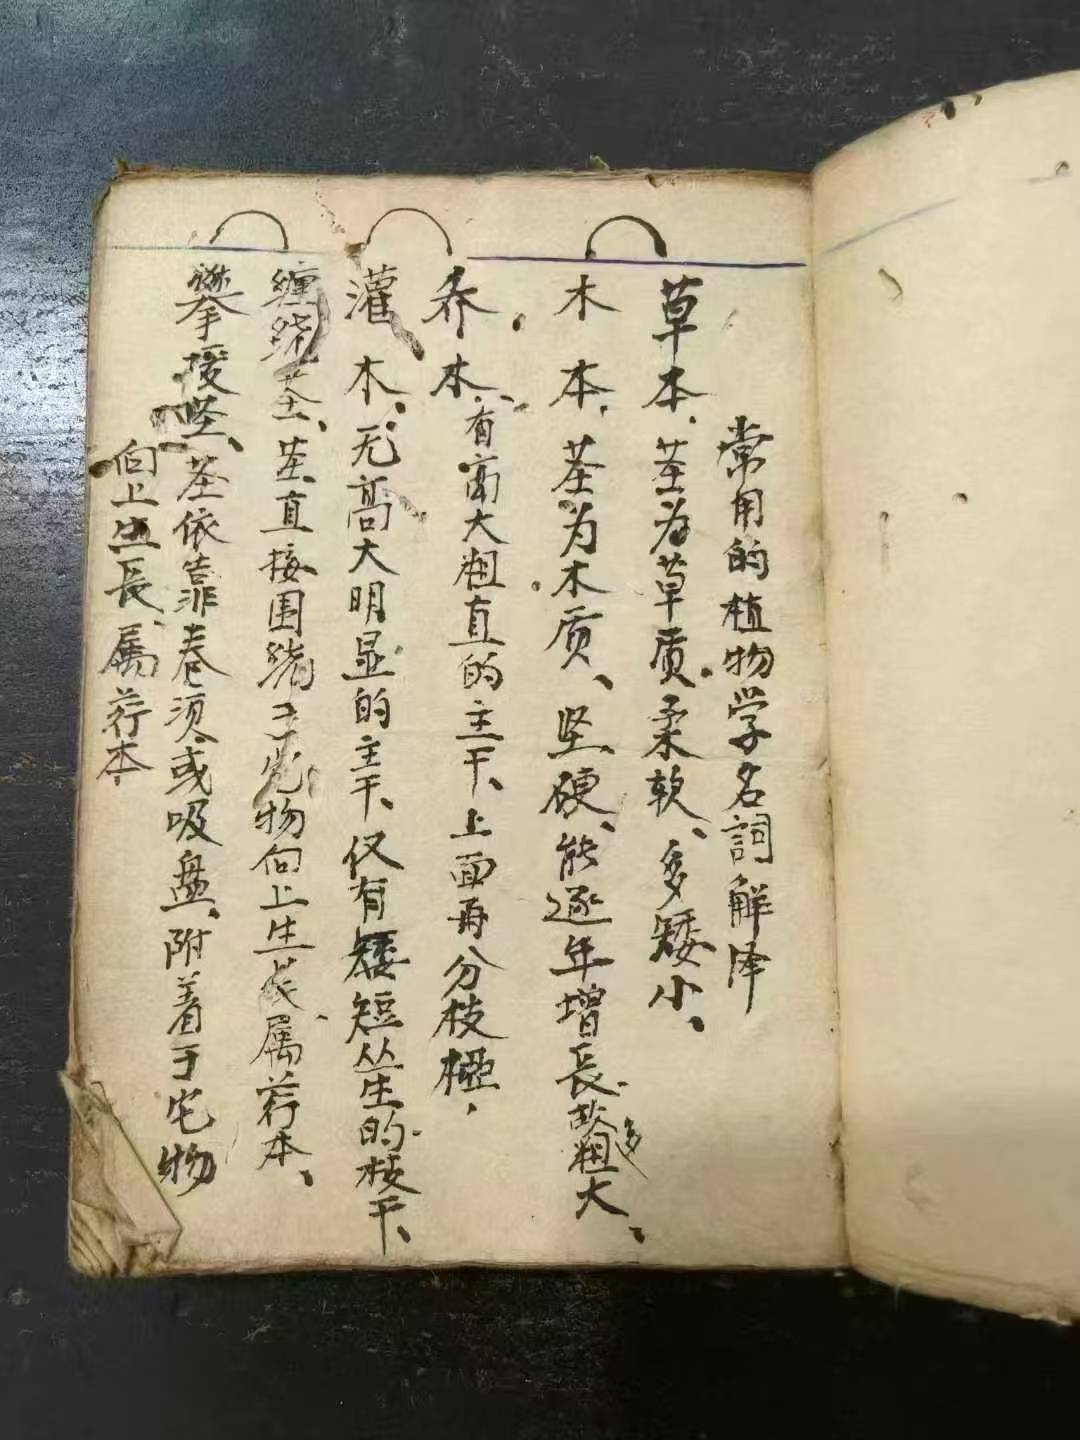 常用的植物学名詞解泽
草本、茎为草质柔软、多矮小、
木本、茎为木质、坚硬、能逐年增長故多粗大、
乔木、有高大粗直的主干、上面再分枝桠，
灌木、无高大明显的主干、仅有矮短丛生的枝干、
缠绕茎、茎直接围绕于它物向上生长、属藤本、
攀援茎、茎依靠卷须或吸盘、附着于它物
向上生長、属藤本，